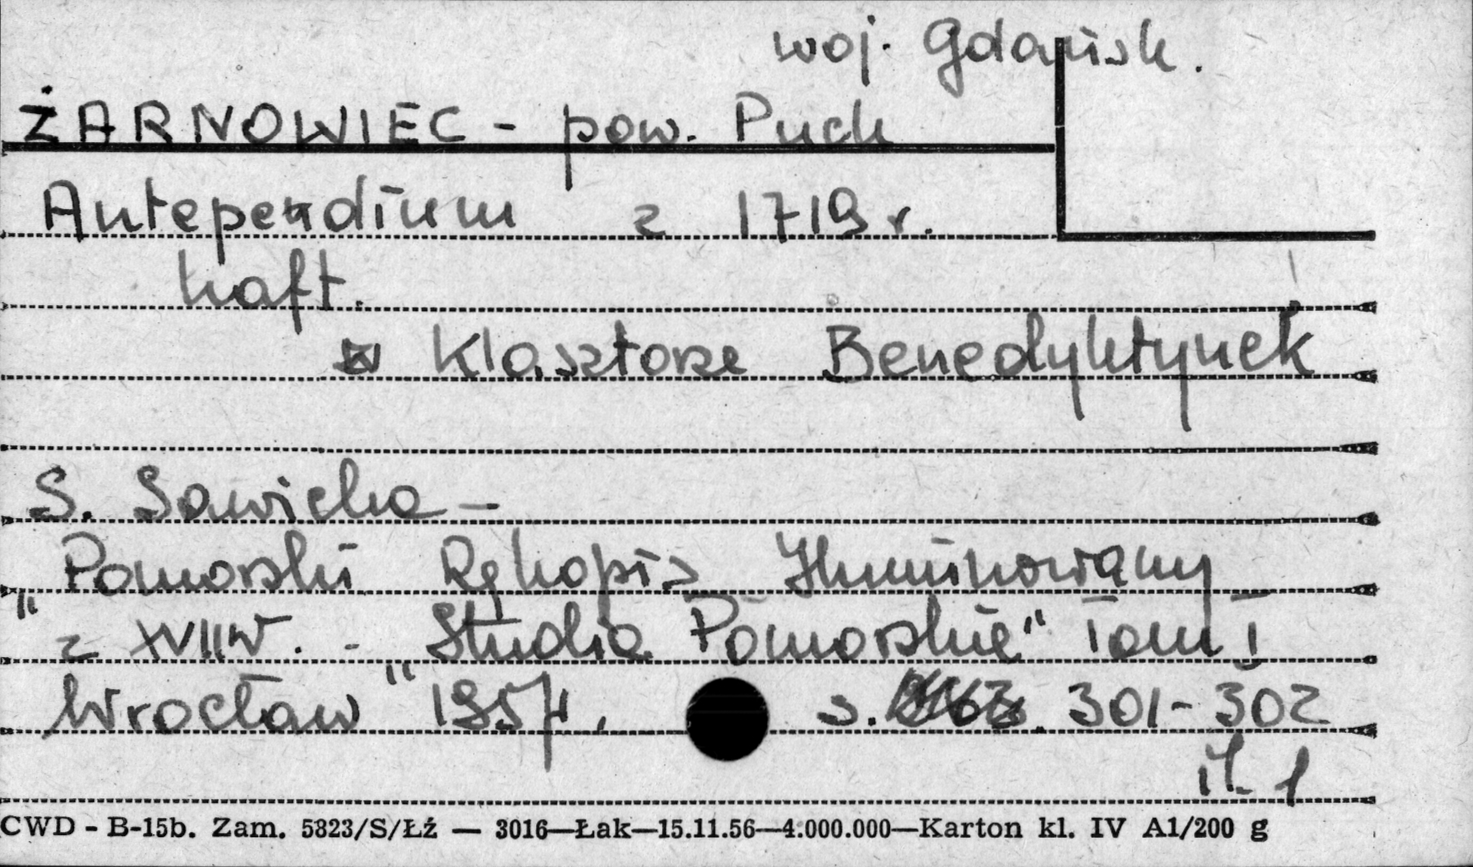 woj. Gdańsk.
ŻARNOWIEC - pow. Puck
Antependium z 1719 r.
haft.
w Klasztorze Benedyktynek
S. Sawicka -
Pomorski Rękopis Iluminowany
" z XVII w. - "Studia Pomorskie" Tom I
Wrocław 1957. s. 301-302
il. 1
CWD - B-15b. Zam. 5823/S/Łź — 3016—Łak—15.11.56—4.000.000—Karton kl. IV A1/200 g